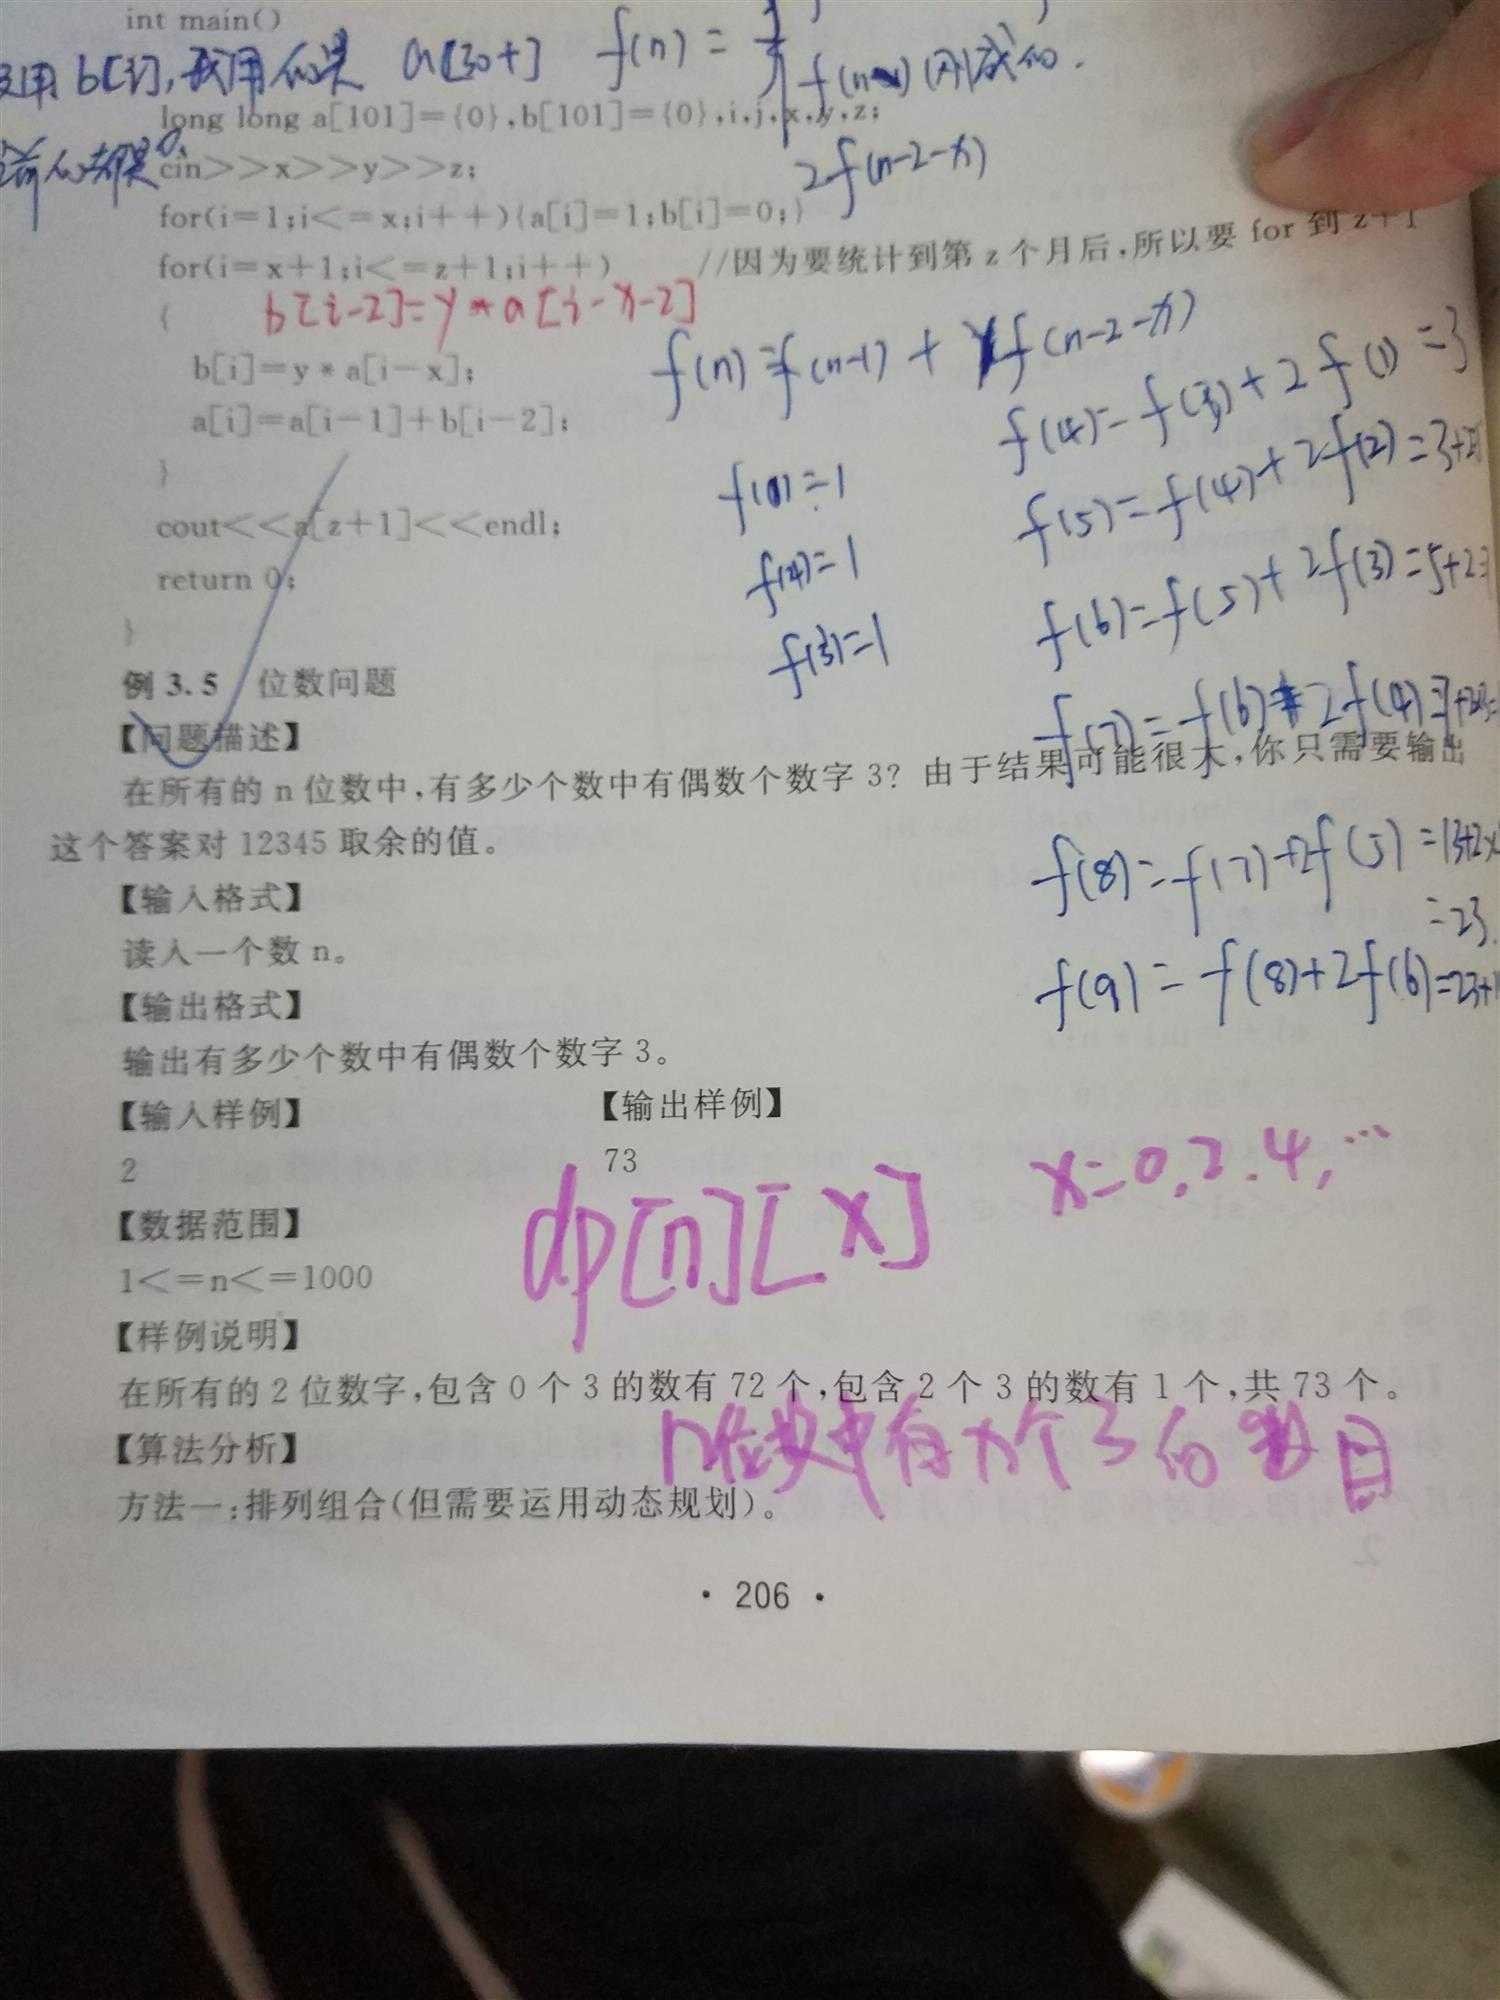 int main()
用 b[i], 我用的是 a[30+] f(n) =
long long a[101]={0},b[101]={0},i,j,x,y,z;
cin>>x>>y>>z;
2f(n-2-x)
for(i=1;i<=x;i++){a[i]=1;b[i]=0;}
for(i=x+1;i<=z+1;i++) //因为要统计到第 z 个月后,所以要 for 到 z+1
{ b[i-2]=y*a[i-x-2]
f(n)=f(n-1) + yf(n-2-x)
b[i]=y*a[i-x];
a[i]=a[i-1]+b[i-2];
f(4)=f(3)+2f(1)=3
}
f(1)=1
f(5)=f(4)+2f(2)=3+2
cout<<a[z+1]<<endl;
f(2)=1
return 0;
f(6)=f(5)+2f(3)=5+2
}
f(3)=1
例 3.5 位数问题
f(7)=f(6)+2f(4)
【问题描述】
在所有的 n 位数中,有多少个数中有偶数个数字 3? 由于结果可能很大,你只需要输出
这个答案对 12345 取余的值。
f(8)=f(7)+2f(5)=13+2x
=23
【输入格式】
读入一个数 n。
f(9)=f(8)+2f(6)=23+
【输出格式】
输出有多少个数中有偶数个数字 3。
【输入样例】 【输出样例】
2 73
dp[n][x] x=0.2.4,…
【数据范围】
1<=n<=1000
【样例说明】
在所有的 2 位数字,包含 0 个 3 的数有 72 个,包含 2 个 3 的数有 1 个,共 73 个。
n位数中有x个3的数目
【算法分析】
方法一:排列组合(但需要运用动态规划)。
· 206 ·